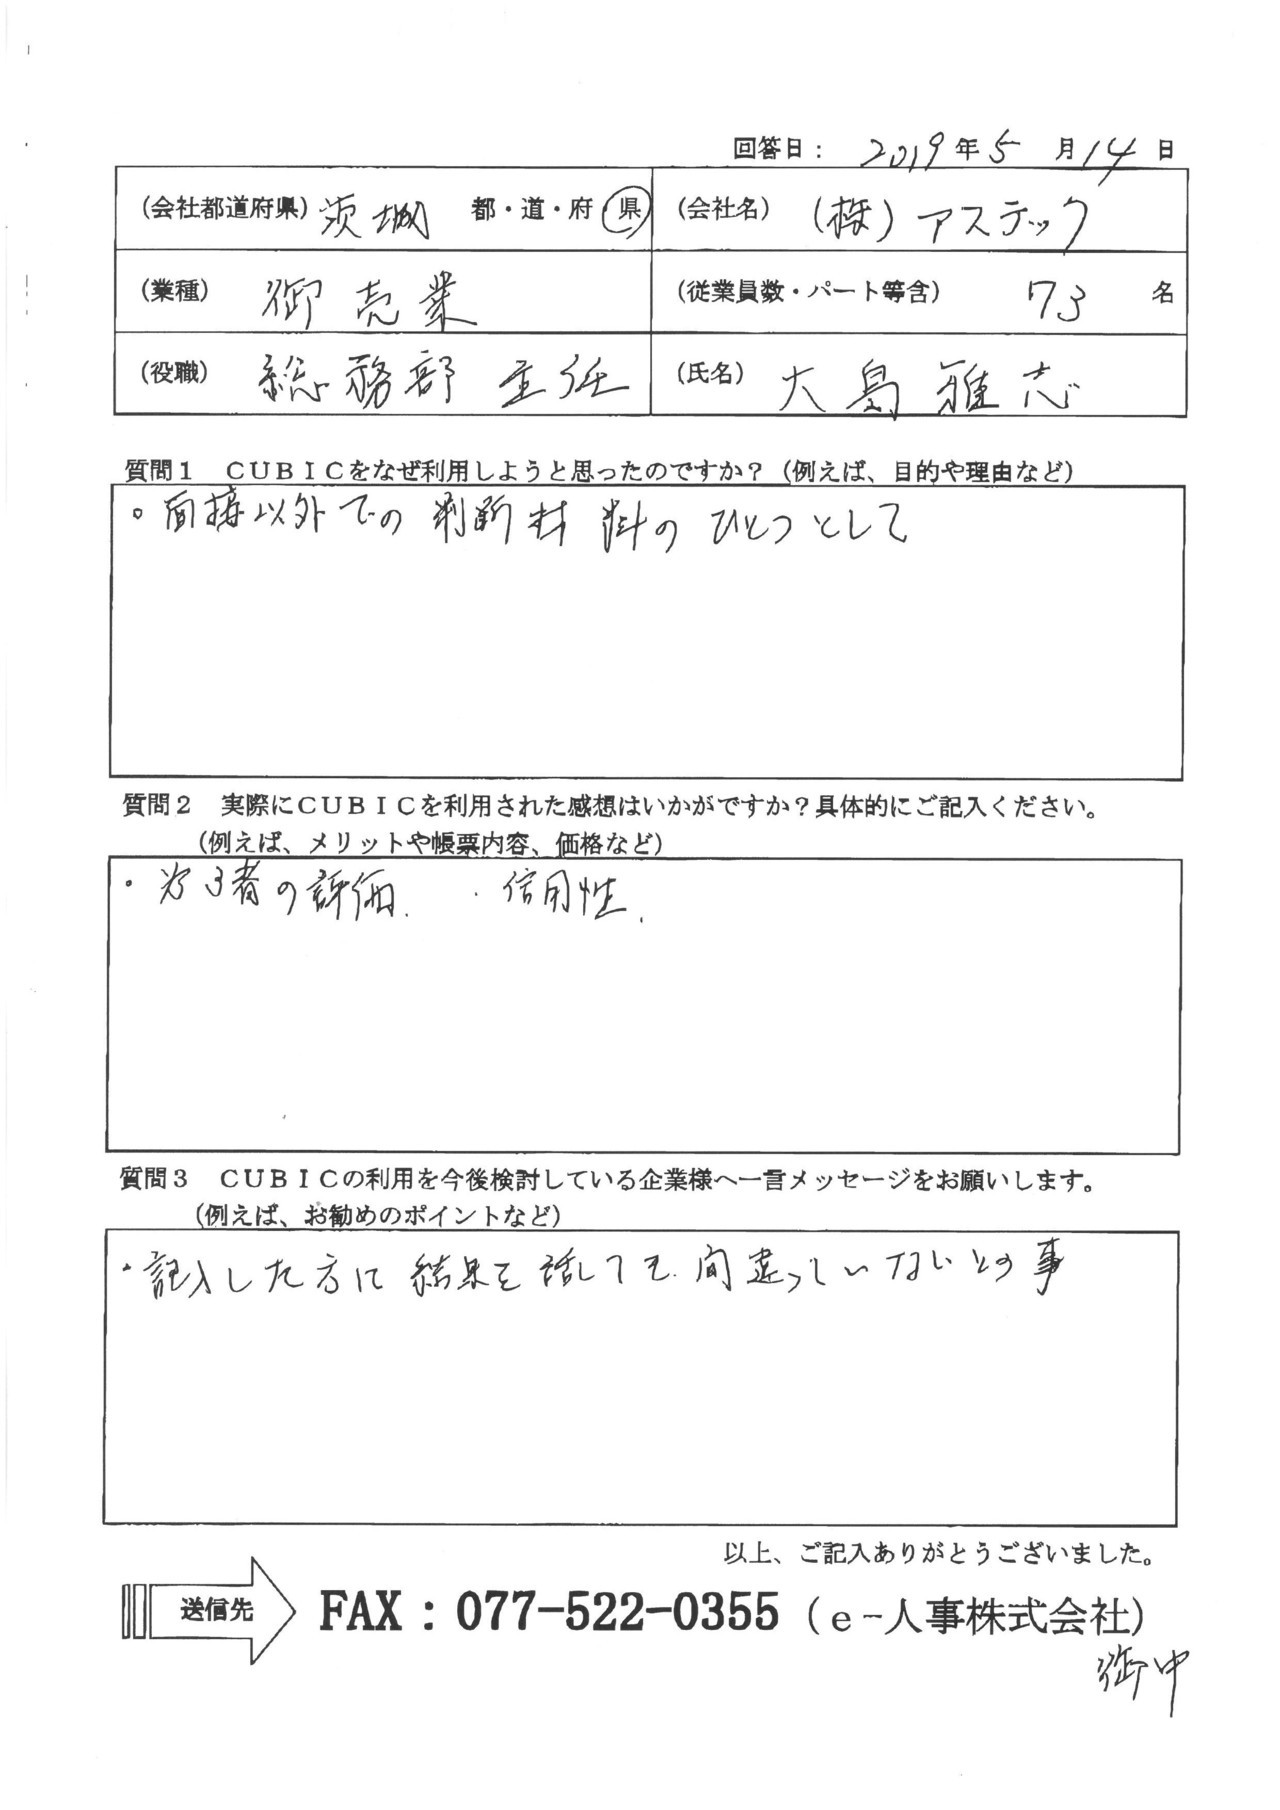 回答日： 2019年5月14日
(会社都道府県) 茨城 都・道・府・県 (会社名) (株)アステック
(業種) 御売業 (従業員数・パート等含) 73 名
(役職) 総務部 主任 (氏名) 大島雅志
質問１ ＣＵＢＩＣをなぜ利用しようと思ったのですか？（例えば、目的や理由など）
。面接以外での判断材料のひとつとして
質問２ 実際にＣＵＢＩＣを利用された感想はいかがですか？具体的にご記入ください。
（例えば、メリットや帳票内容、価格など）
・労る者の評価. ・信用性.
質問３ ＣＵＢＩＣの利用を今後検討している企業様へ一言メッセージをお願いします。
（例えば、お勧めのポイントなど）
・記入した方に結果を話しても.間違っていないとの事
以上、ご記入ありがとうございました。
送信先 FAX：077-522-0355（ｅ-人事株式会社）
御中